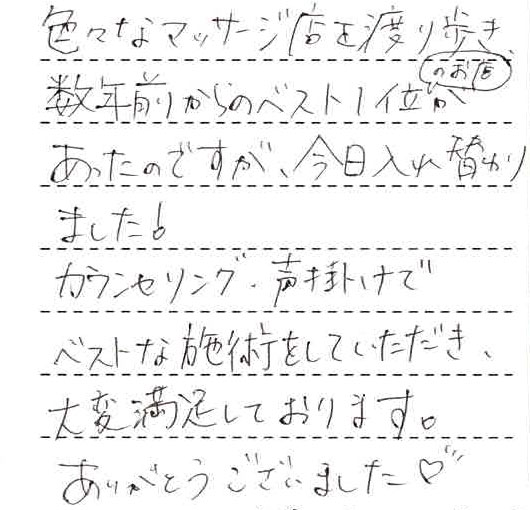 色々なマッサージ店を渡り歩き
数年前からのベスト1位のお店が
あったのですが、今日入れ替わり
ました!
カウンセリング・声掛けで
ベストな施術をしていただき、
大変満足しております。
ありがとうございました♡